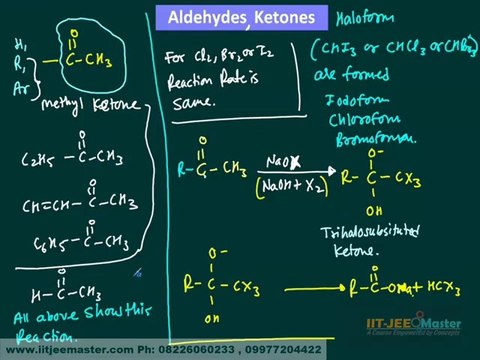 Aldehydes, Ketones
H,
R,
Ar
O
C-CH3
methyl ketone
O
C2H5 - C - CH3
O
CH=CH - C - CH3
O
C6H5 - C - CH3
O
H - C - CH3
All above show this
Reaction.
For Cl2, Br2 or I2
Reaction Rate is
same.
Haloform
(CHI3 or CHCl3 or CHBr3)
are formed
Iodoform
Chloroform
Bromoforman
O
R - C - CH3
NaOX
(NaOH + X2)
O-
R - C - CX3
OH
Trihalosubsitutal
Ketone.
O-
R - C - CX3
OH
O
R - C - ONa + HCX3
IIT-JEE Master
A Course Empowered by Concepts
www.iitjeemaster.com Ph: 08226060233 , 09977204422